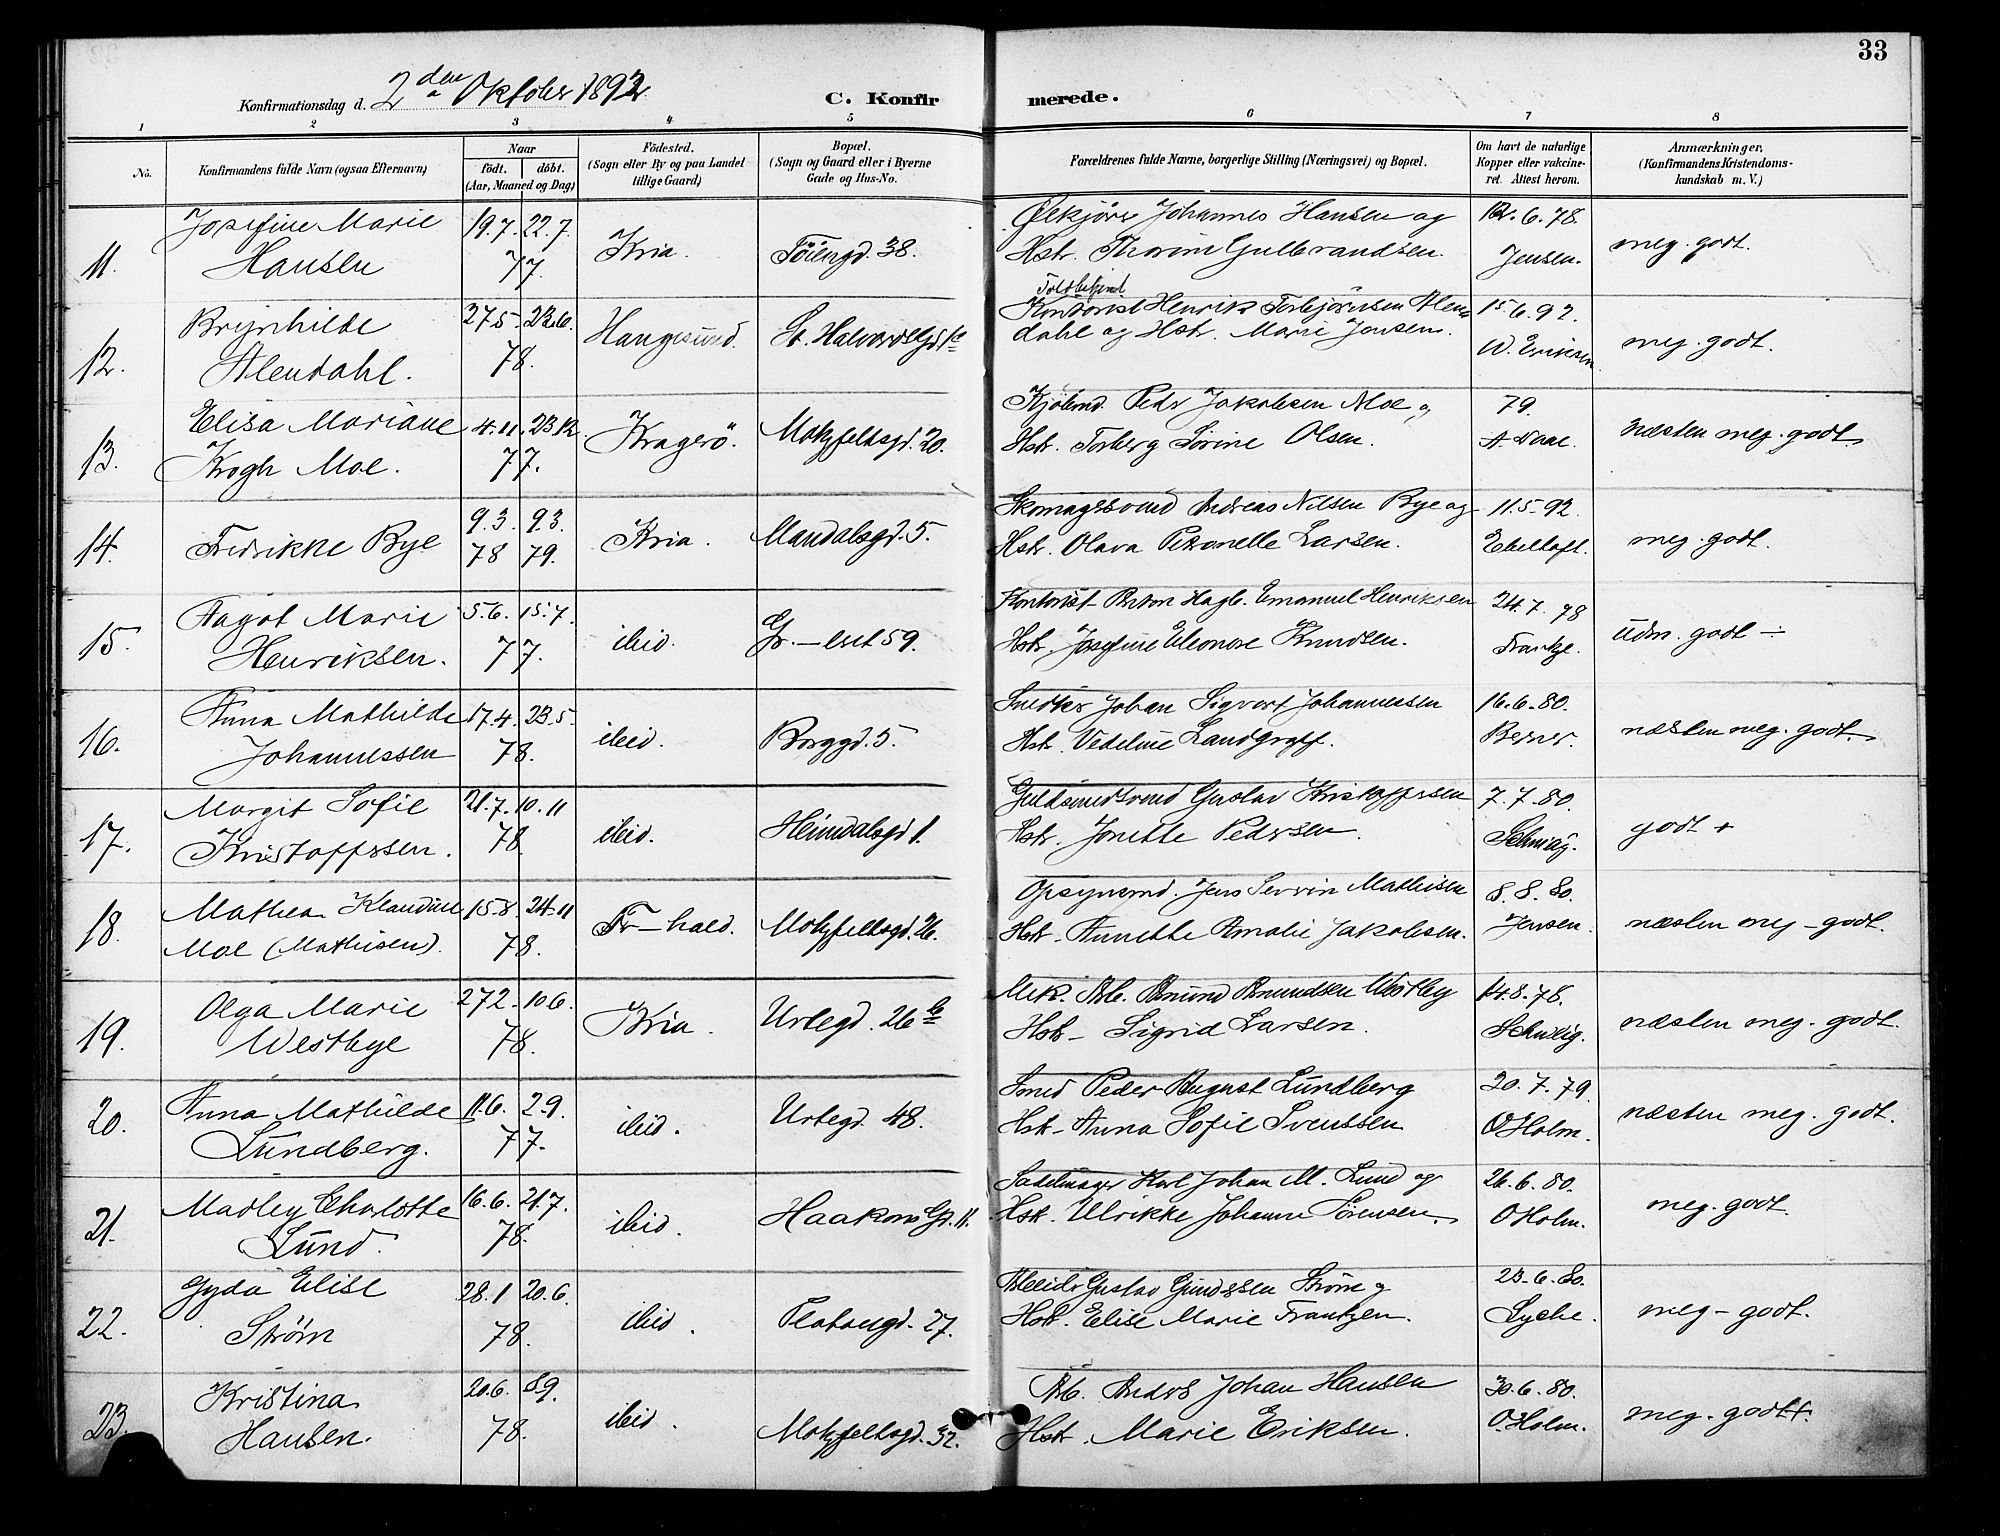 33
Konfirmationsdag d. 2den Oktober 1892.
C. Konfirmerede.
1 2 3 4 5 6 7 8
No.
Konfirmandens fulde Navn (ogsaa Efternavn)
Naar
födt. döbt.
(Aar, Maaned og Dag)
Födested.
(Sogn eller By og paa Landet
tillige Gaard)
Bopæl.
(Sogn og Gaard eller i Byerne
Gade og Hus-No.
Forældrenes fulde Navne, borgerlige Stilling (Næringsvei) og Bopæl.
Om havt de naturlige
Kopper eller vakcine-
ret. Attest herom.
Anmærkninger.
(Konfirmandens Kristendoms-
kundskab m. V.)
Josefine Marie 19.7. 22.7. Johannes Hansen og 12.6.78.
11. Hansen 77. Kria. Töiengd. 38. Hstr. Thorine Gulbrandsen. Jensen. meg. godt.
Toldbetjent
Brynhilde 27 5. 23.6. Kontorist Henrik Torbjörnsen Alen- 15.6.92.
12. Alendahl. 78. Haugesund. St. Halvards gd. dahl og Hstr. Marie Jensen. W. Eriksen. meg. godt.
Elisa Mariane 4.11. 23 12. Kjöbmd. Peder Jakobsen Moe og 79.
13. Krogh Moe. 77. Kragerö. Motzfeldtsgd. 20. Hstr. Torberg Sorine Olsen. næsten meg. godt.
9.3. 9.3. Skomagersvend Andreas Nilsen Bye og 11.5.92.
14. Fredrikke Bye 78 79. Kria. Mandalsgd. 5. Hstr. Olava Petronelle Larsen. Ebeltoft. meg. godt.
Fagot Marie 5.6. 15.7. Kontorist Anton Hagb. Emanuel Henriksen 24.7.78
15. Henriksen. 77. ibid. Gr.–leret 59. Hstr. Josefine Eleonore Knudsen. udm. godt ÷
Anna Mathilde 17.4. 23.5. Snedker Johan Sigvart Johannessen 16.6.80.
16. Johannessen 78. ibid. Borggd. 5. Hst. Vedeline Landgraff. Berner. næsten meg. godt.
Margit Sofie 21.7. 10.11 Guldsmedsvend Gustav Kristoffersen 7.7.80.
17. Kristoffersen. 78. ibid. Heimdalsgd 1. Hstr. Jonette Pedersen. Schweig. godt +
Mathea Klaudine 15.8. 24.11 Opsynsmd. Jens Severin Mathisen 8.8.80.
18. Moe (Mathisen). 78. Fr–hald. Motzfeldtsgd. 26. Hst. Annette Amalie Jakobsen. Jensen. næsten meg – godt.
Olga Marie 27 2. 10 6. Mek. Arb. Amund Amundsen Westby 14.8.78.
19. Westbye 78. Kria. Urtegd. 26 b Hst – Sigrid Larsen. Schweig. næsten meg. godt.
Anna Mathilde 11.6. 2.9. Smed Peder August Lundberg 20.7.79.
20. Lundberg. 77. ibid. Urtegd. 48. Hst – Anna Sofie Svenssen O Holm. næsten meg. godt.
Madley Charlotte 16.6. 21.7. Sadelmager Karl Johan M. Lund og 26.6.80.
21. Lund. 78. ibid. Haakons Gd. 11. Hst. Ulrikke Johanne Sörensen. O Holm. meg. godt.
Gyda Elise 28.1 20.6. Arbeider Gustav Gundersen Ström og 23.6.80.
22. Ström 78. ibid. Platougd. 27. Hst. Elise Marie Frantzen. Lyche. meg – godt.
Kristina 20.6. 8.9. Arb. Anders Johan Hansen 30.6.80.
23. Hansen. 78. ibid. Motzfeldtsgd. 32. Hst. Marie Eriksen. O. Holm. meg. godt+.